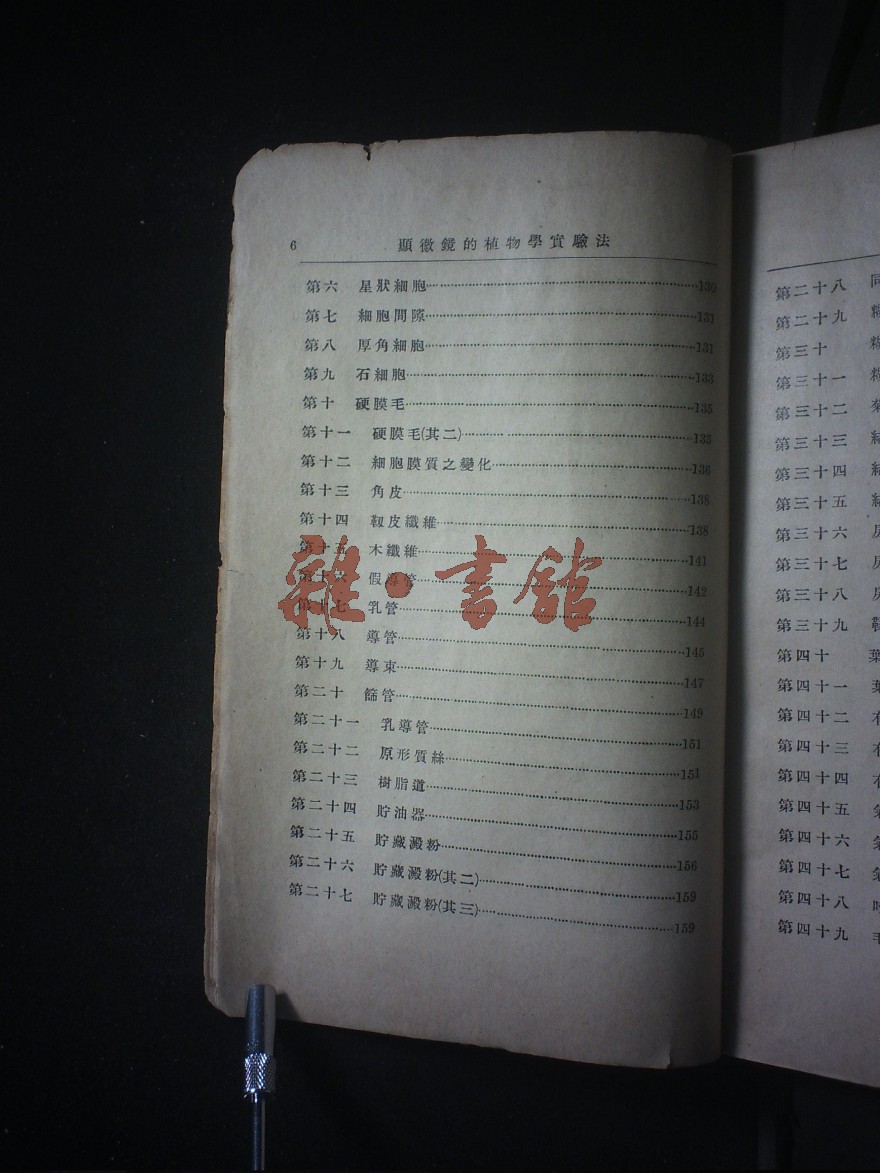 6 顯微鏡的植物學實驗法
第六 星狀細胞 130
第七 細胞間隙 131
第八 厚角細胞 131
第九 石細胞 133
第十 硬膜毛 135
第十一 硬膜毛(其二) 135
第十二 細胞膜質之變化 136
第十三 角皮 138
第十四 靱皮纖維 138
第十五 木纖維 141
第十六 假導管 142
第十七 乳管 144
第十八 導管 145
第十九 導束 147
第二十 篩管 149
第二十一 乳導管 151
第二十二 原形質絲 151
第二十三 樹脂道 153
第二十四 貯油器 155
第二十五 貯藏澱粉 156
第二十六 貯藏澱粉(其二) 159
第二十七 貯藏澱粉(其三) 159
雜·書館
第二十八
第二十九
第三十
第三十一
第三十二
第三十三
第三十四
第三十五
第三十六
第三十七
第三十八
第三十九
第四十
第四十一
第四十二
第四十三
第四十四
第四十五
第四十六
第四十七
第四十八
第四十九